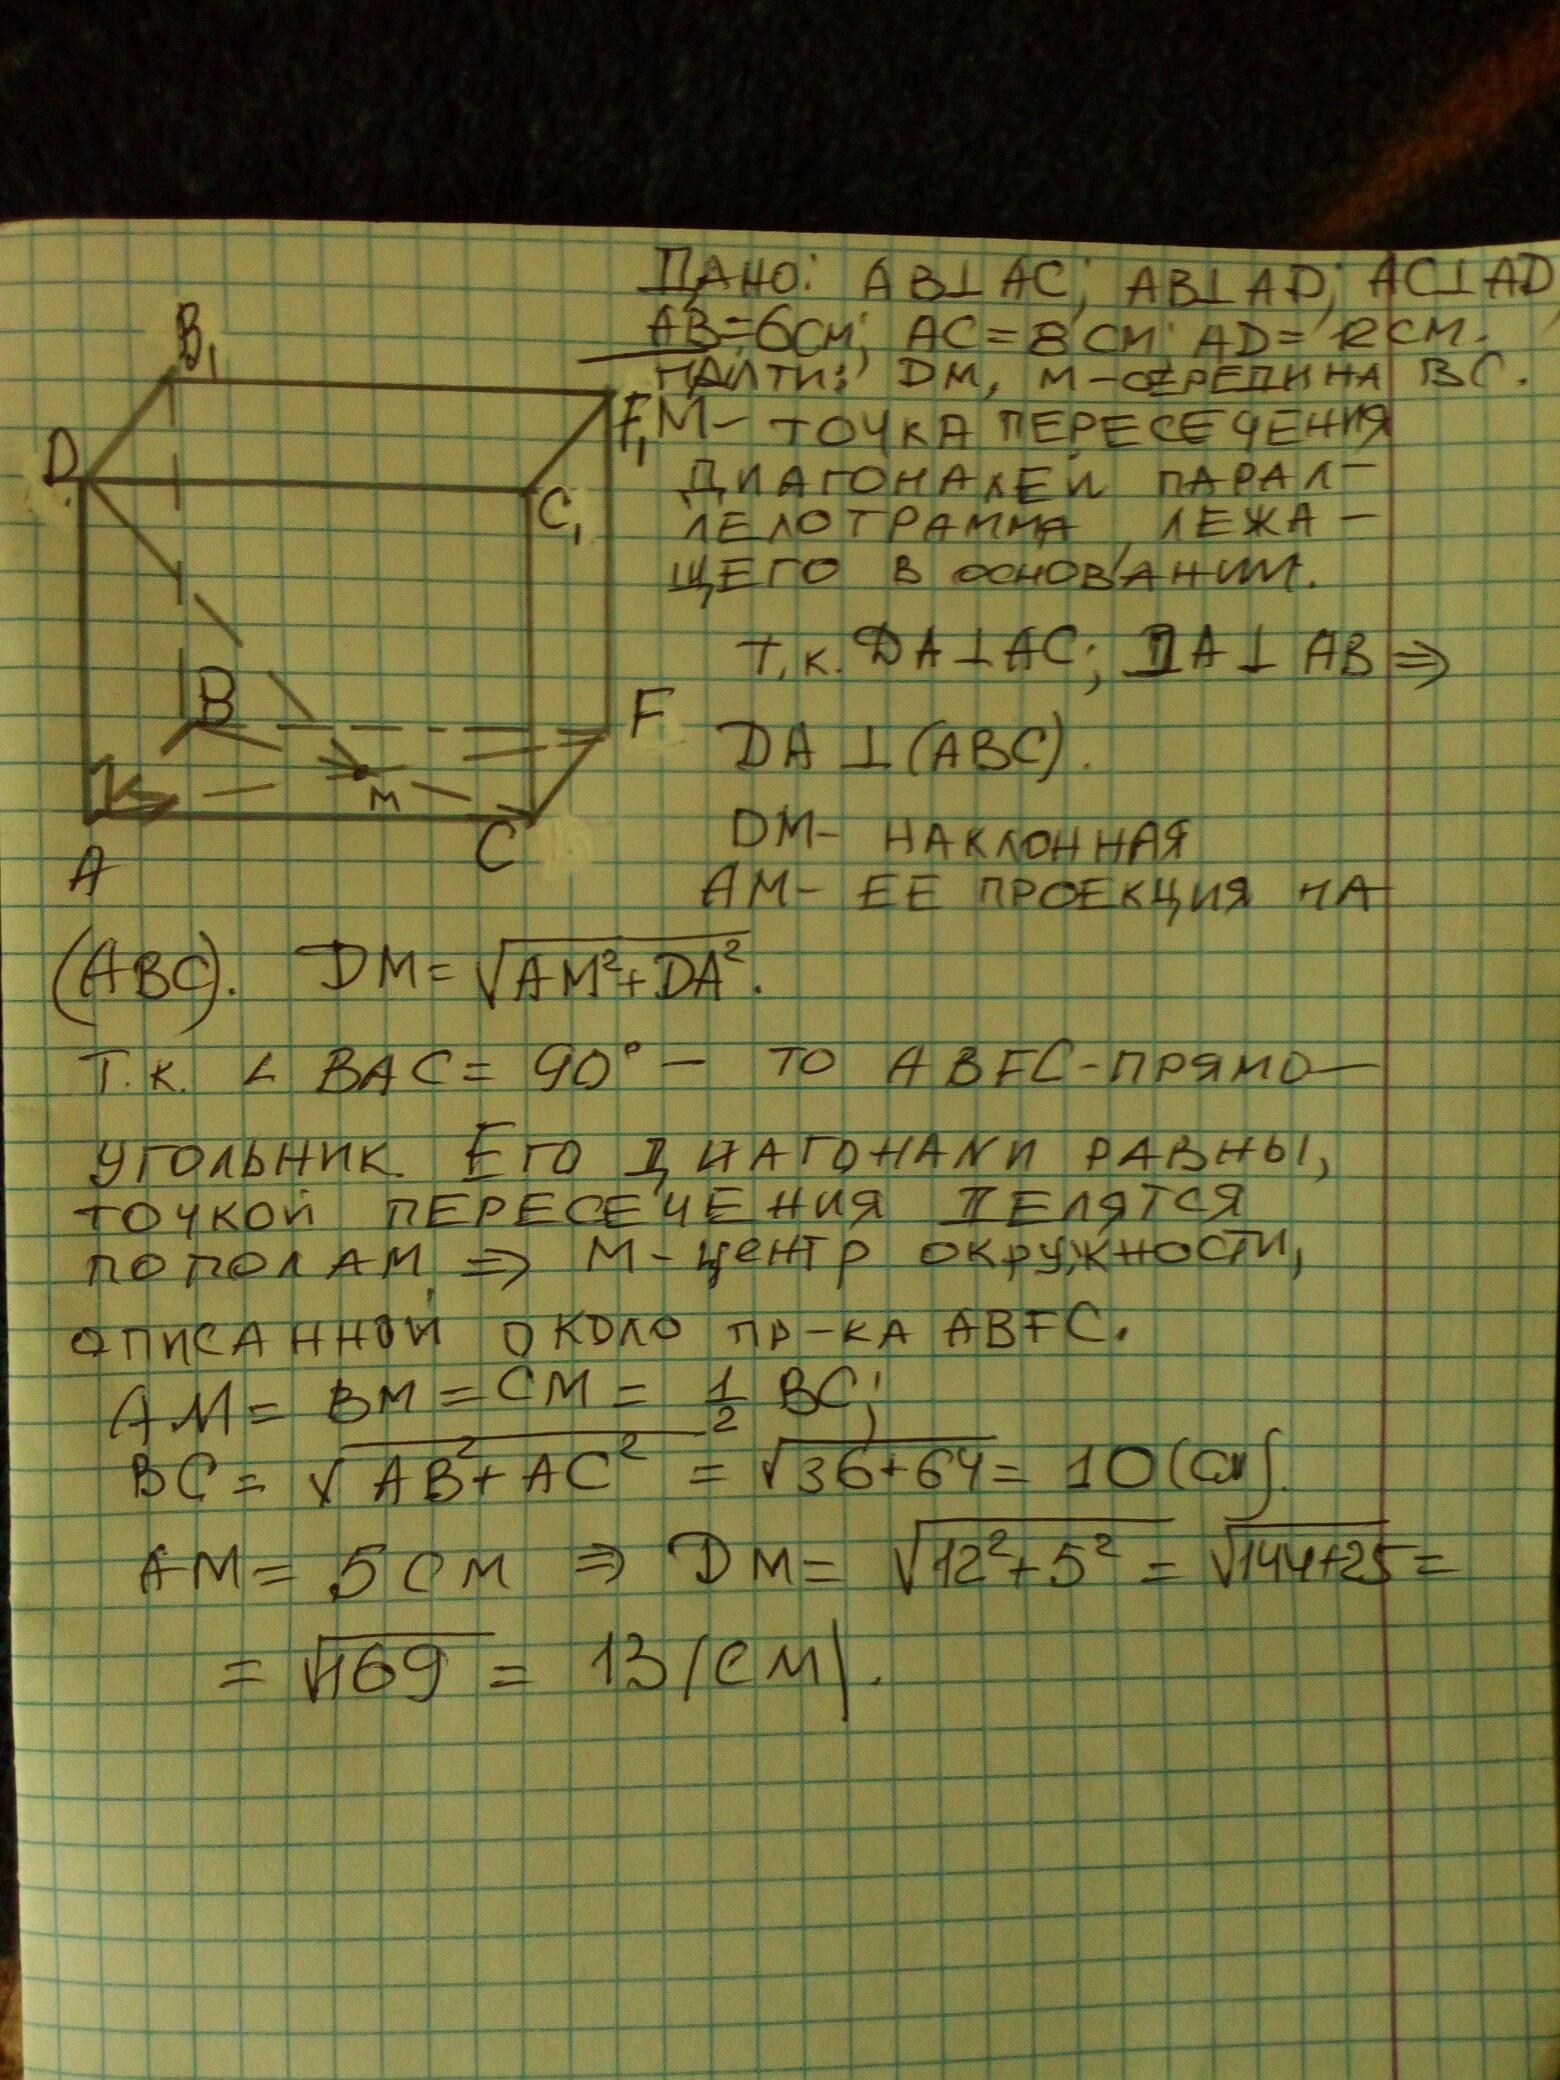 Дано: AB⊥AC; AB⊥AD; AC⊥AD,
AB=6см; AC=8см; AD=12см.
Найти: DM, M-середина BC.
M- точка пересечения
диагоналей парал-
лелограмма, лежа-
щего в основании.
Т.к. DA⊥AC; DA⊥AB ⇒
DA⊥(ABC).
DM- наклонная
AM- ее проекция на
(ABC). DM=√AM²+DA².
Т.к. ∠BAC=90° - то ABFC-прямо-
угольник. Его диагонали равны,
точкой пересечения делятся
пополам ⇒ M-центр окружности,
описанной около пр-ка ABFC.
AM=BM=CM=1/2 BC;
BC=√AB²+AC²=√36+64=10(см).
AM=5см ⇒ DM=√12²+5²=√144+25=
=√169=13(см).
B₁
F₁
D
C₁
B
F
M
A
C